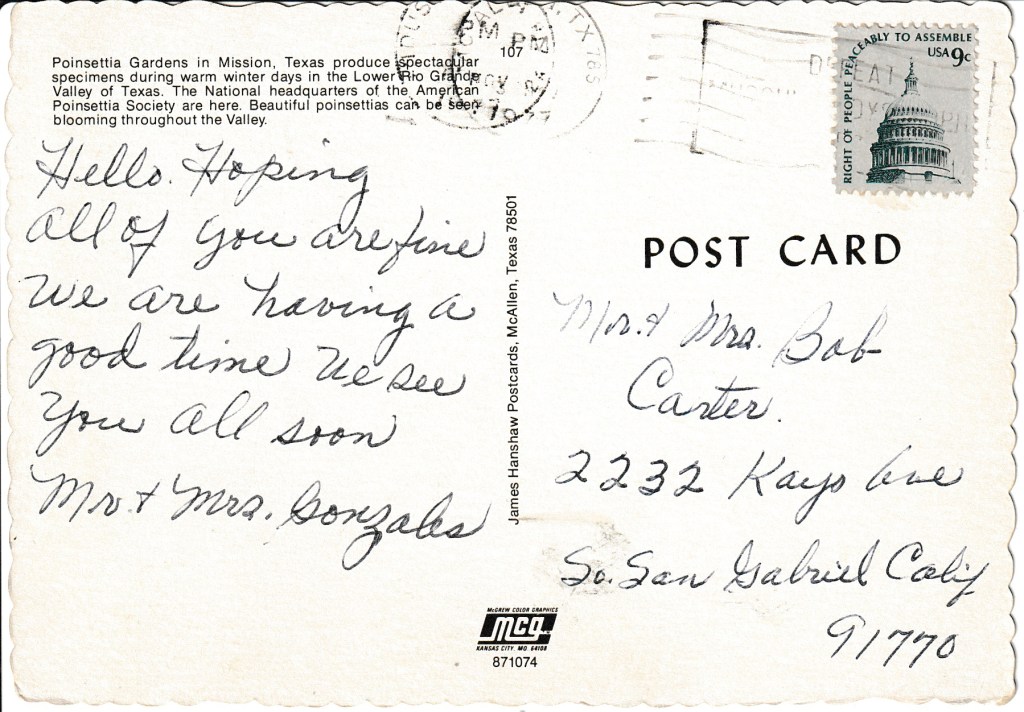 Poinsettia Gardens in Mission, Texas produce spectacular
specimens during warm winter days in the Lower Rio Grande
Valley of Texas. The National headquarters of the American
Poinsettia Society are here. Beautiful poinsettias can be seen
blooming throughout the Valley.
Hello. Hoping
all of you are fine
We are having a
good time We see
you all soon
Mr. & Mrs. Gonzales
PM PM
107
NOV
TX 785
RIGHT OF PEOPLE PEACEABLY TO ASSEMBLE
USA 9c
James Hanshaw Postcards, McAllen, Texas 78501
POST CARD
Mr. & Mrs. Bob
Carter.
2232 Kays Ave
So. San Gabriel Calif
91770
McGREW COLOR GRAPHICS
mcg
KANSAS CITY, MO. 64108
871074